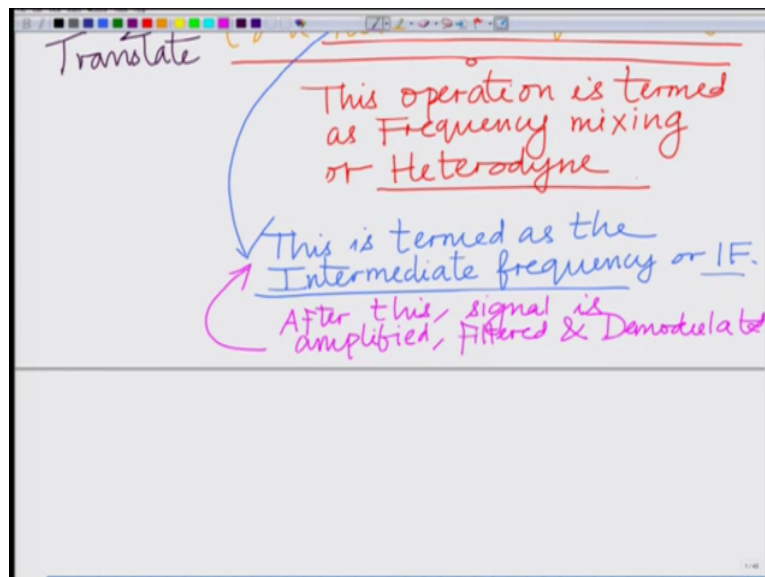 Translate
This operation is termed
as Frequency mixing
or Heterodyne
This is termed as the
Intermediate frequency or IF.
After this, signal is
amplified, Filtered & Demodulated